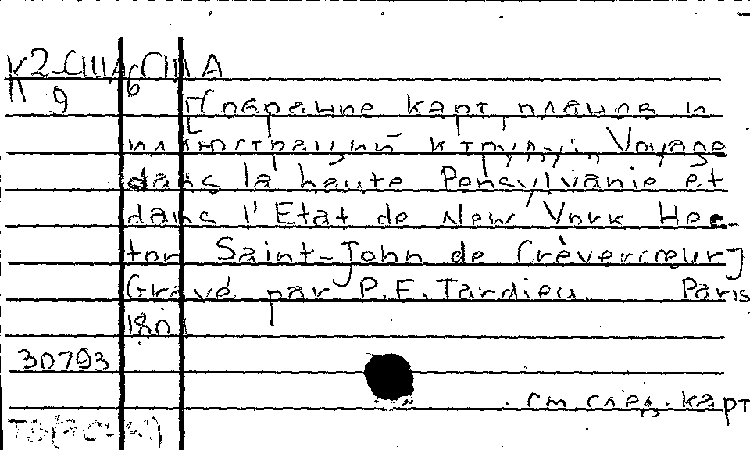 К2-США США
9 6
[Собрание карт, планов и
иллюстраций к труду: „Voyage
dans la haute Pensylvanie et
dans l'Etat de New York Hec-
tor Saint-John de Crèvecœur]
Gravé par P.F. Tardieu Paris
1801
30793
см. след. карт